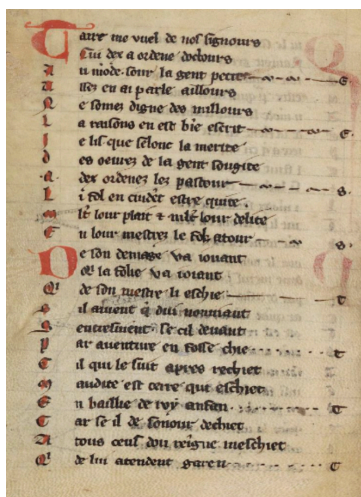 Tarre me vuel de nos signours
Cui dex a ordene doctours
A u mode sour la gent petite E
A ssez en ai parle aillours
N e somez digne des millours
L a raisons en est bie escrit E
I e lis que selonc la merite
D es oeurez de la gent sougite
A dex ordenez lez pastour S
L i fol en cuidet estre quite
M lt lour plait &
E n lour mestrez le fol atour S
De son demage va iouant
Qi la folie va loiant
Q' de son mestre li eschie T
il avient q dui vont
entresuient se cil devant
P ar auenture en fosse chie T
C il qui le suit apres rechiet
M audite est terre que eschiet
E n baillie de roy anfan T
C ar se il de sonour dechiet
A tous ceus dou reigne meschiet
Q' de lui atendent garen T